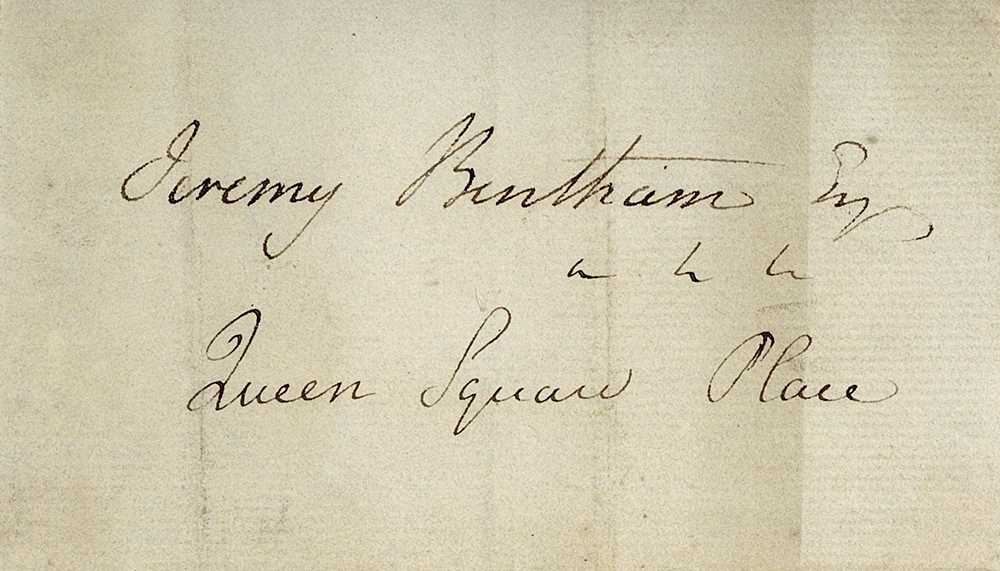 Jeremy Bentham Esq
Queen Square Place